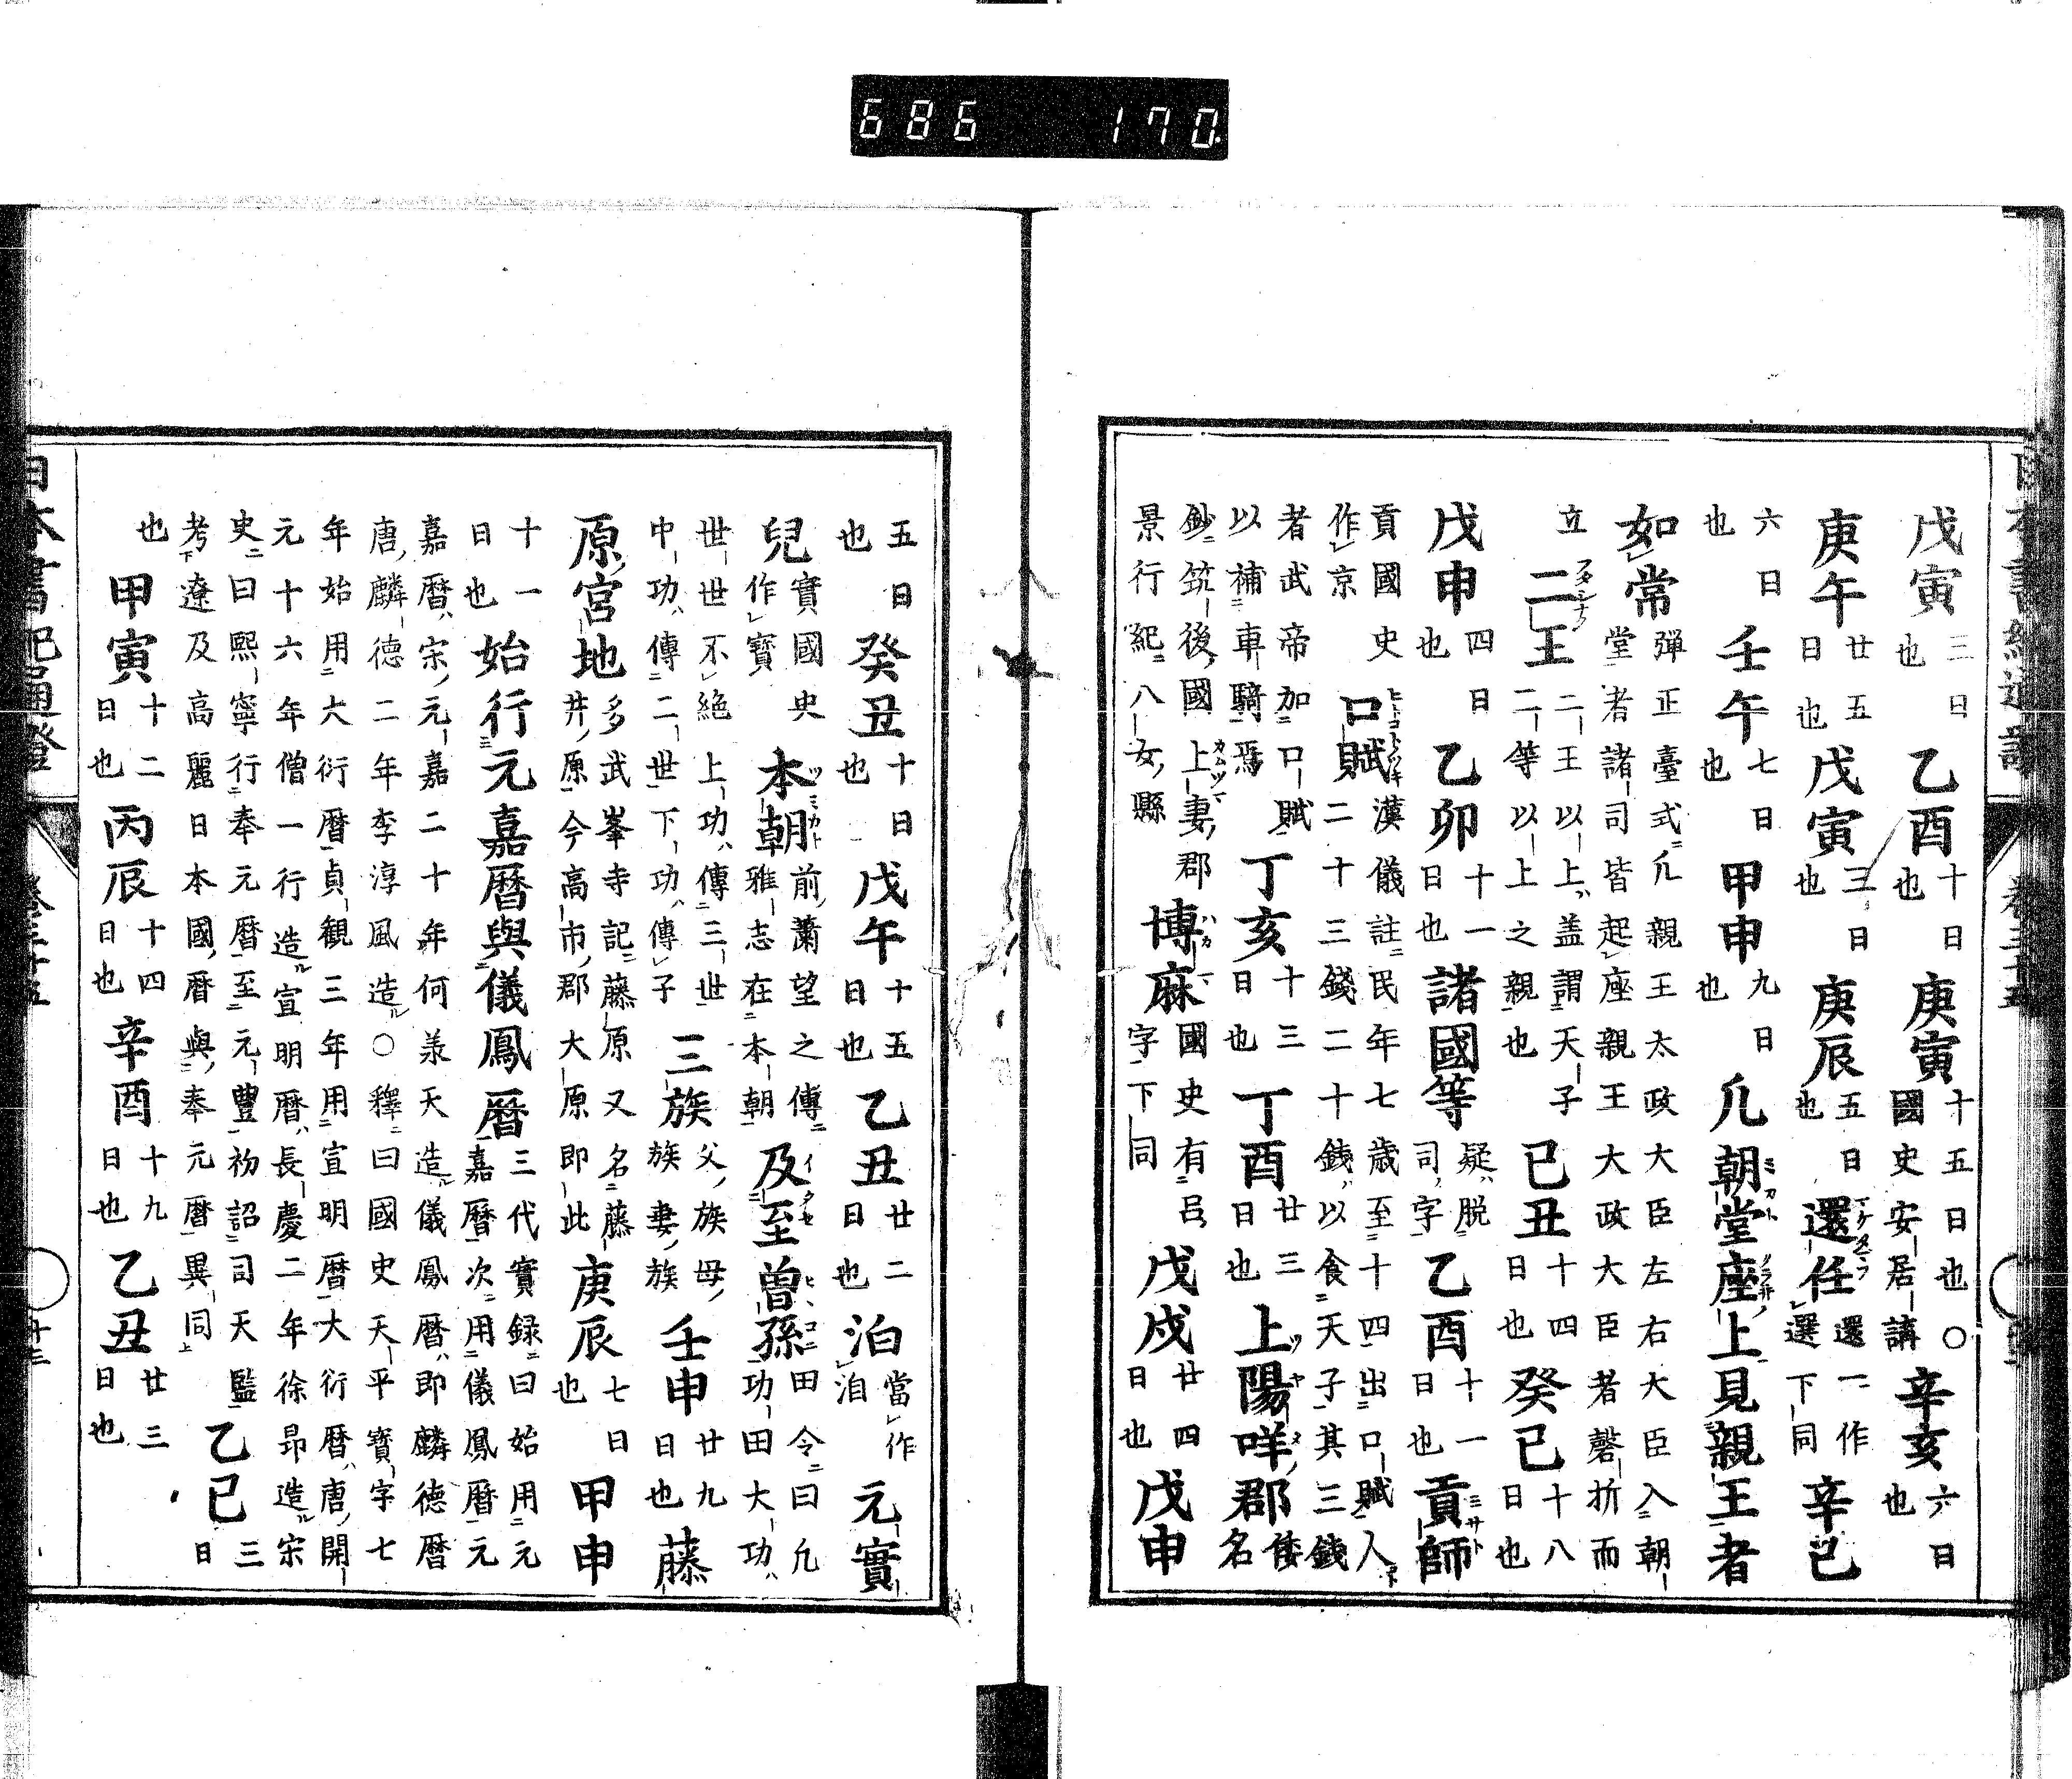 戊寅三日也乙酉十日也庚寅十五日也○國史安居講辛亥六日也
庚午廿五日也戊寅三日也庚辰五日也還任還一作選下同辛巳
六日也壬午七日也甲申九日也凡朝堂座上見親王者
如常彈正臺式凡親王太政大臣左右大臣入朝堂者諸司皆起座親王大政大臣者磬折而
立二王二王以上盖謂天子二等以上之親也己丑十四日也癸巳十八日也
戊申四日也乙卯十一日也諸國等疑脱司字乙酉十一日也貢師
貢國史作京口賦漢儀註民年七歳至十四出口賦人二十三錢二十錢以食天子其三錢
者武帝加口賦以補車騎焉丁亥十三日也丁酉廿三日也上陽咩郡倭名
鈔筑後國上妻郡景行紀八女縣博麻國史有呂字下同戊戌廿四日也戊申
五日也癸丑十日也戊午十五日也乙丑廿二日也泊當作洎元實
兒實國史作寳本朝前蕭望之傳雅志在本朝及至曾孫田令曰凡功田大功
世世不絶上功傳三世中功傳二世下功傳子三族父族母族妻族壬申廿九日也藤
原宮地多武峯寺記藤原又名藤井原今高市郡大原即此庚辰七日也甲申
十一日也始行元嘉曆與儀鳳曆三代實録曰始用元嘉曆次用儀鳳曆元
嘉曆宋元嘉二十年何承天造儀鳳曆即麟德曆唐麟德二年李淳風造○釋曰國史天平寳字七
年始用大衍曆貞観三年用宣明曆大衍曆唐開元十六年僧一行造宣明曆長慶二年徐昂造宋
史曰熙寧行奉元曆至元豐初詔司天監考遼及高麗日本國曆與奉元曆異同乙巳三日
也甲寅十二日也丙辰十四日也辛酉十九日也乙丑廿三日也
日本書紀通證 卷三十五 十三
686 170